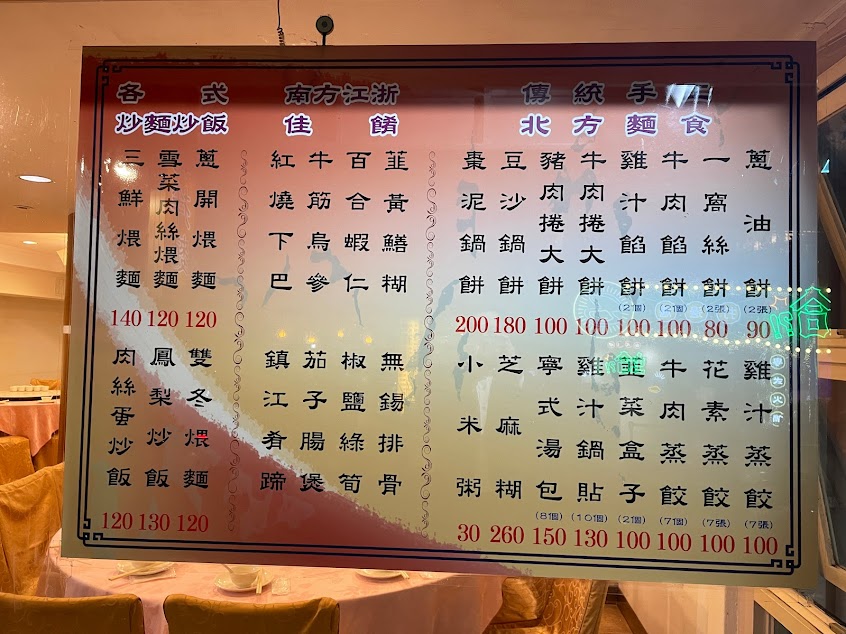 傳統手
北方麵食
蔥油餅
(2張)
90
一窩絲餅
(2張)
80
牛肉餡餅
(2個)
100
雞汁餡餅
(2個)
100
牛肉捲大餅
100
豬肉捲大餅
100
豆沙鍋餅
180
棗泥鍋餅
200
雞汁蒸餃
(7張)
100
花素蒸餃
(7張)
100
牛肉蒸餃
(7個)
100
韮菜盒子
(2個)
100
雞汁鍋貼
(10個)
130
寧式湯包
(8個)
150
芝麻糊
260
小米粥
30
南方江浙
佳餚
韮黃鱔糊
百合蝦仁
牛筋烏參
紅燒下巴
無錫排骨
椒鹽綠筍
茄子腸煲
鎮江肴蹄
各式
炒麵炒飯
蔥開煨麵
120
雪菜肉絲煨麵
120
三鮮煨麵
140
雙冬煨麵
120
鳳梨炒飯
130
肉絲蛋炒飯
120